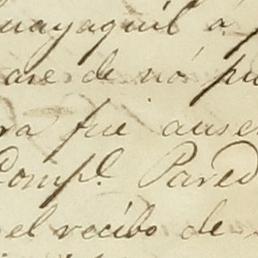 uayaquil á
ase de nó pu
ra fue ausen
Compl. Pared
el recibo de